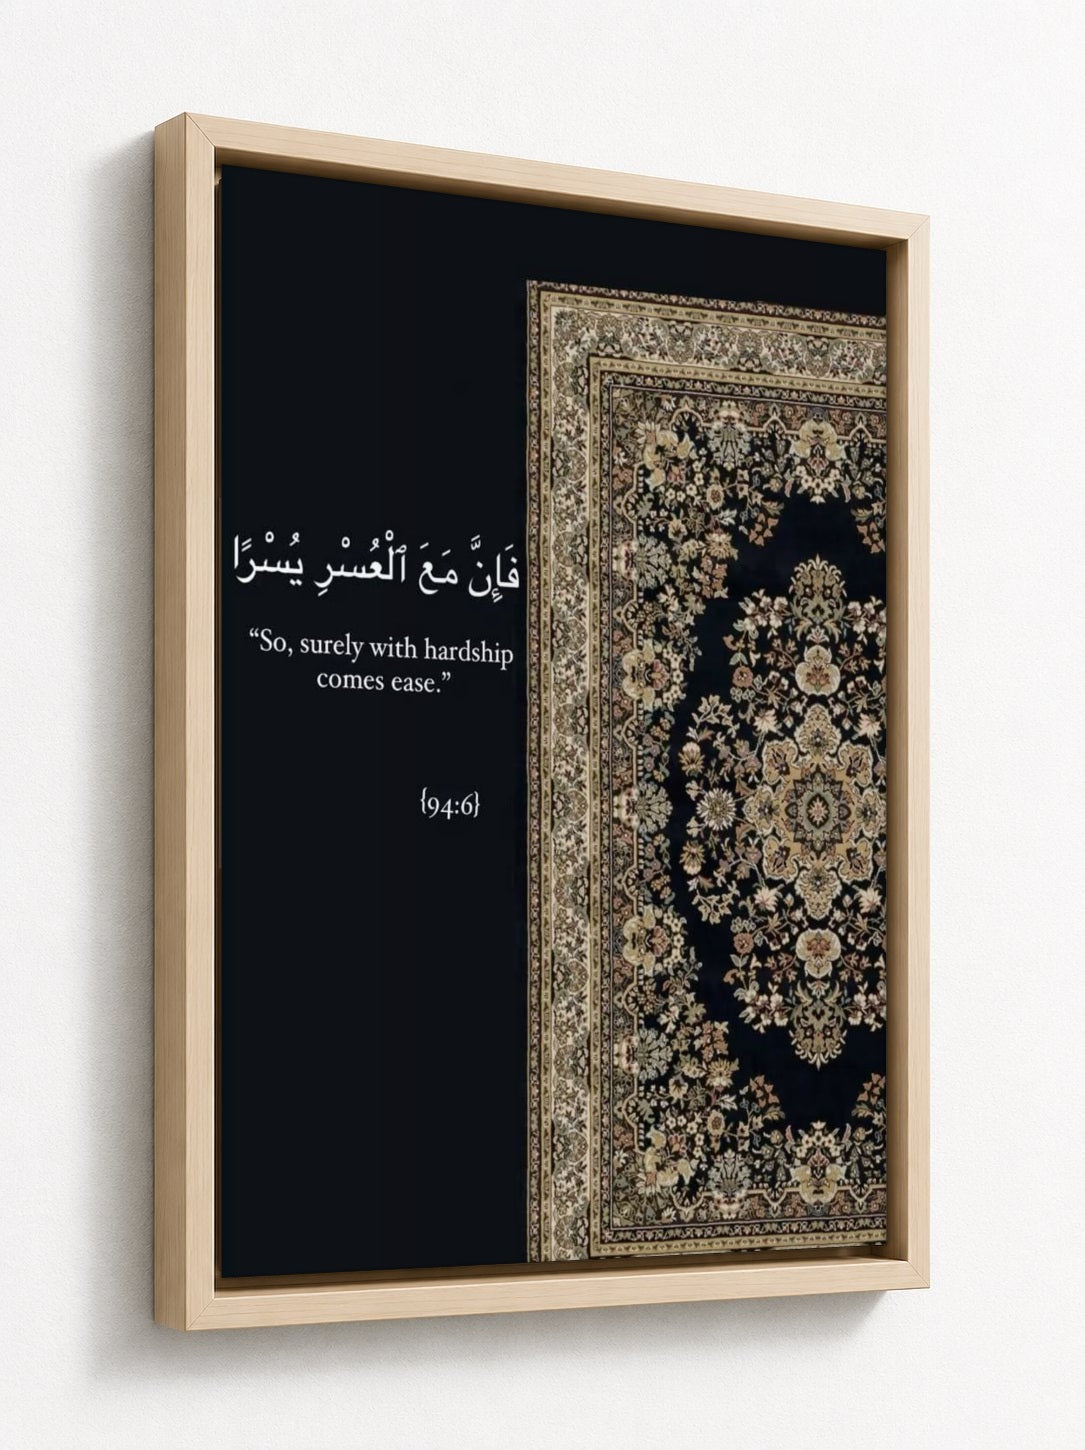 فَإِنَّ مَعَ ٱلْعُسْرِ يُسْرًا
“So, surely with hardship
comes ease.”
{94:6}